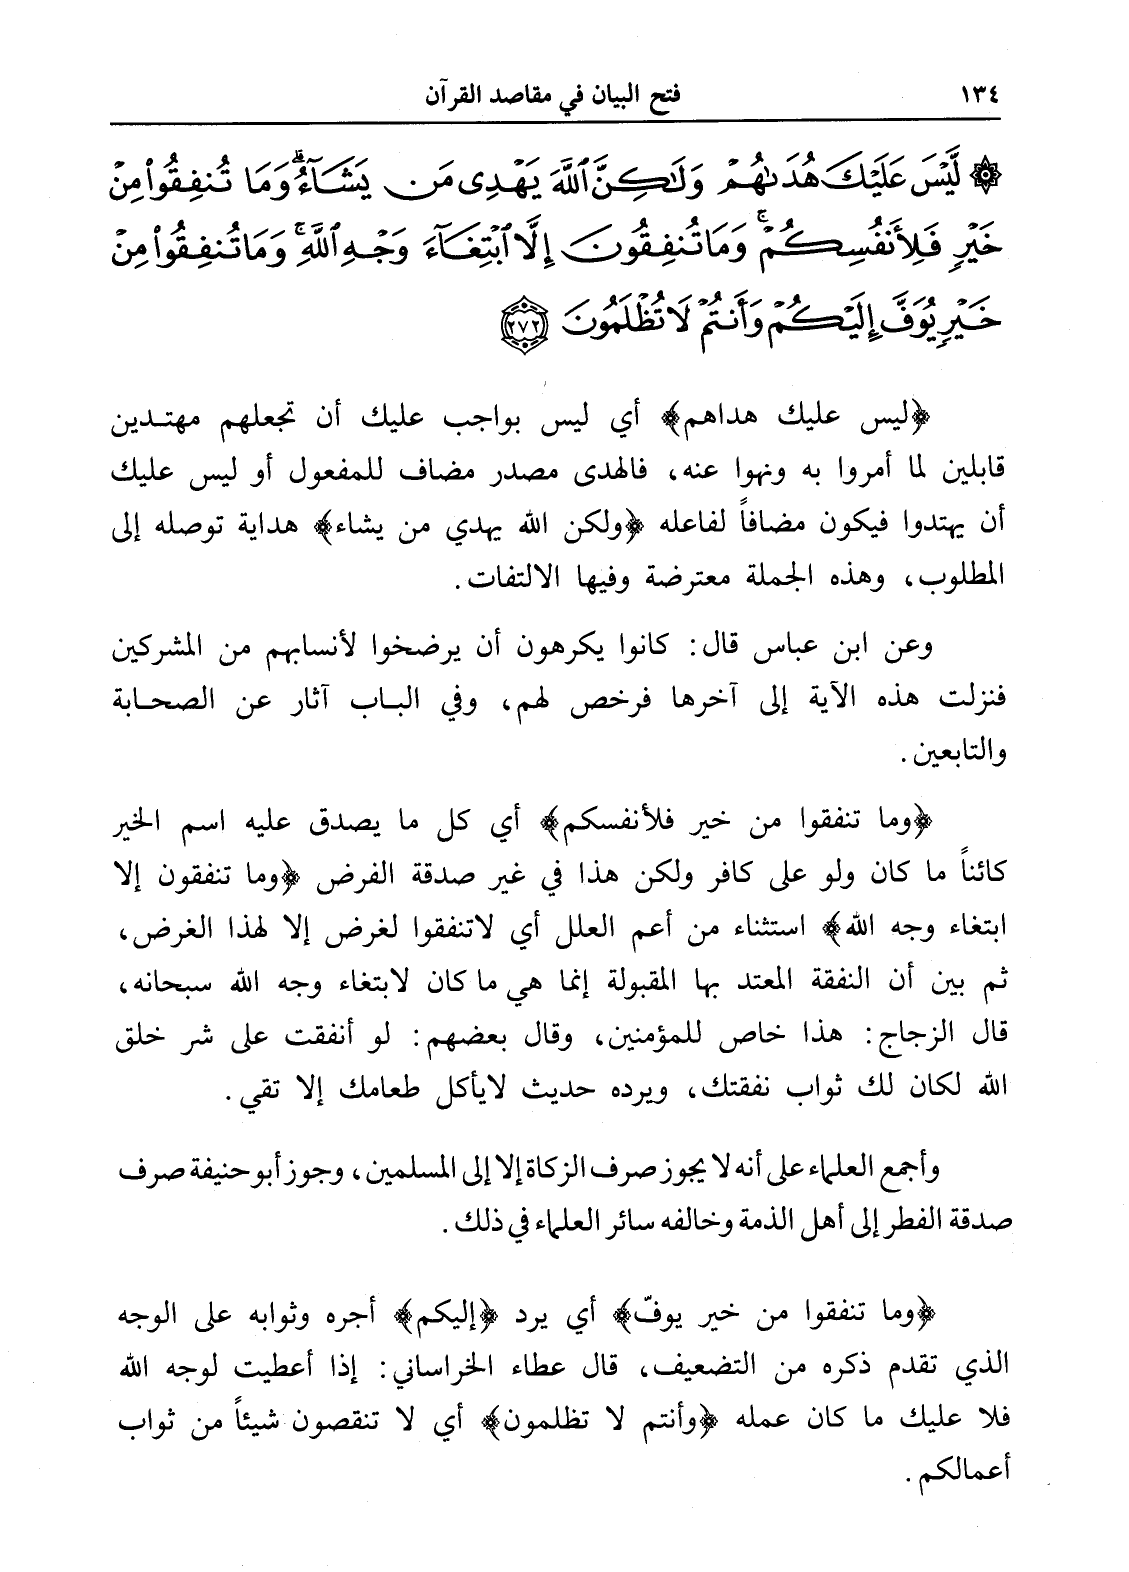 ١٣٤ فتح البيان في مقاصد القرآن
۞ لَّيْسَ عَلَيْكَ هُدَىٰهُمْ وَلَٰكِنَّ ٱللَّهَ يَهْدِى مَن يَشَآءُ ۗ وَمَا تُنفِقُوا۟ مِنْ
خَيْرٍ فَلِأَنفُسِكُمْ ۚ وَمَا تُنفِقُونَ إِلَّا ٱبْتِغَآءَ وَجْهِ ٱللَّهِ ۚ وَمَا تُنفِقُوا۟ مِنْ
خَيْرٍ يُوَفَّ إِلَيْكُمْ وَأَنتُمْ لَا تُظْلَمُونَ ٢٧٢
﴿ليس عليك هداهم﴾ أي ليس بواجب عليك أن تجعلهم مهتدين
قابلين لما أمروا به ونهوا عنه، فالهدى مصدر مضاف للمفعول أو ليس عليك
أن يهتدوا فيكون مضافاً لفاعله ﴿ولكن الله يهدي من يشاء﴾ هداية توصله إلى
المطلوب، وهذه الجملة معترضة وفيها الالتفات.
وعن ابن عباس قال: كانوا يكرهون أن يرضخوا لأنسابهم من المشركين
فنزلت هذه الآية إلى آخرها فرخص لهم، وفي الباب آثار عن الصحابة
والتابعين.
﴿وما تنفقوا من خير فلأنفسكم﴾ أي كل ما يصدق عليه اسم الخير
كائناً ما كان ولو على كافر ولكن هذا في غير صدقة الفرض ﴿وما تنفقون إلا
ابتغاء وجه الله﴾ استثناء من أعم العلل أي لاتنفقوا لغرض إلا لهذا الغرض،
ثم بين أن النفقة المعتد بها المقبولة إنما هي ما كان لابتغاء وجه الله سبحانه،
قال الزجاج: هذا خاص للمؤمنين، وقال بعضهم: لو أنفقت على شر خلق
الله لكان لك ثواب نفقتك، ويرده حديث لايأكل طعامك إلا تقي.
وأجمع العلماء على أنه لا يجوز صرف الزكاة إلا إلى المسلمين، وجوز أبو حنيفة صرف
صدقة الفطر إلى أهل الذمة وخالفه سائر العلماء في ذلك.
﴿وما تنفقوا من خير يوفّ﴾ أي يرد ﴿إليكم﴾ أجره وثوابه على الوجه
الذي تقدم ذكره من التضعيف، قال عطاء الخراساني: إذا أعطيت لوجه الله
فلا عليك ما كان عمله ﴿وأنتم لا تظلمون﴾ أي لا تنقصون شيئاً من ثواب
أعمالكم.